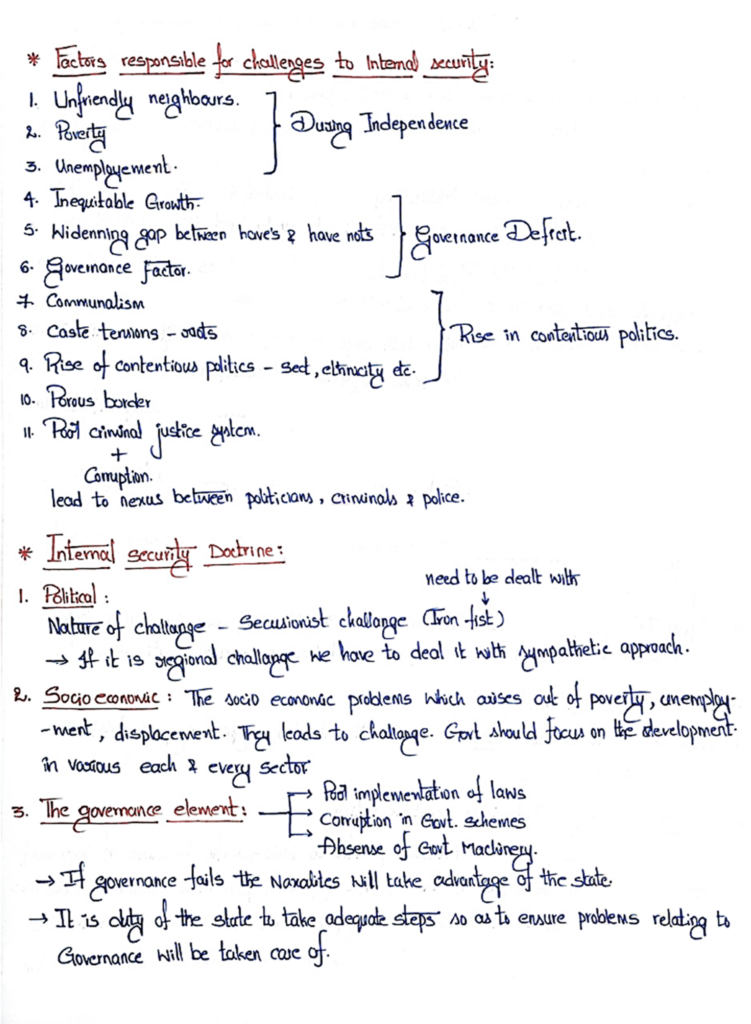 * Factors responsible for challenges to Internal security:
1. Unfriendly neighbours.
2. Poverty
During Independence
3. Unemployement.
4. Inequitable Growth.
5. Widenning gap between have's & have nots
Governance Deficit.
6. Governance Factor.
7 Communalism
8. Caste tensions -
Rise in contentious politics.
9. Rise of contentious politics - sect, ethnicity etc.
10. Porous border
11. Poor criminal justice system.
+
Corruption.
lead to nexus between politicians, criminals & police.
* Internal security Doctrine:
need to be dealt with
↓
1. Political:
Nature of challange - Secusionist challange (Iron fist)
→ If it is regional challange we have to deal it with sympathetic approach.
2. Socio economic: The socio economic problems which arises out of poverty, unemploy-
-ment, displacement. They leads to challange. Govt should focus on the development.
in various each & every sector
→ Poor implementation of laws
3. The governance element: → Corruption in Govt. schemes
→ Absense of Govt Machinery.
→ If governance fails the Naxalites will take advantage of the state.
→ It is duty of the state to take adequate steps so as to ensure problems relating to
Governance will be taken care of.